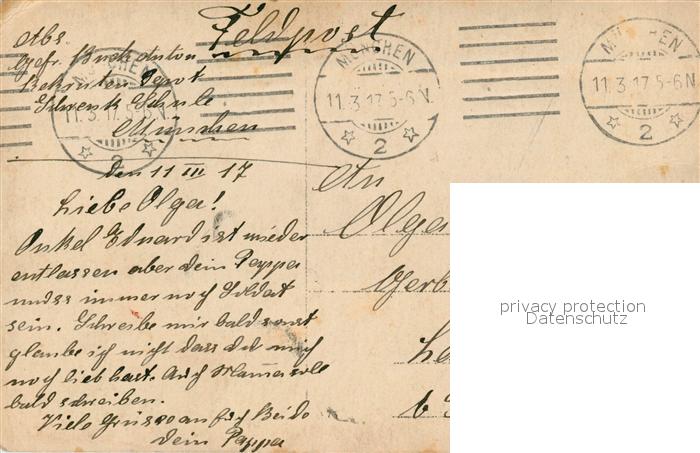 Feldpost
Abs.
Gefr. Buck Anton
Rekruten Depot
Schwenk Schule
München
MÜNCHEN
11.3.17.5-6N.
2
MÜNCHEN
11.3.17.5-6N.
2
MÜNCHEN
11.3.17.5-6N.
2
den 11 III 17
Liebe Olga!
Onkel Eduard ist wieder
entlassen aber dein Pappa
muss immer noch Soldat
sein. Schreibe mir bald sonst
glaube ich nicht dass du mich
noch lieb hast. Auch Mama solle
bald schreiben.
Viele Grüsse an Euch Beide
dein Pappa
An
Olga
privacy protection
Datenschutz